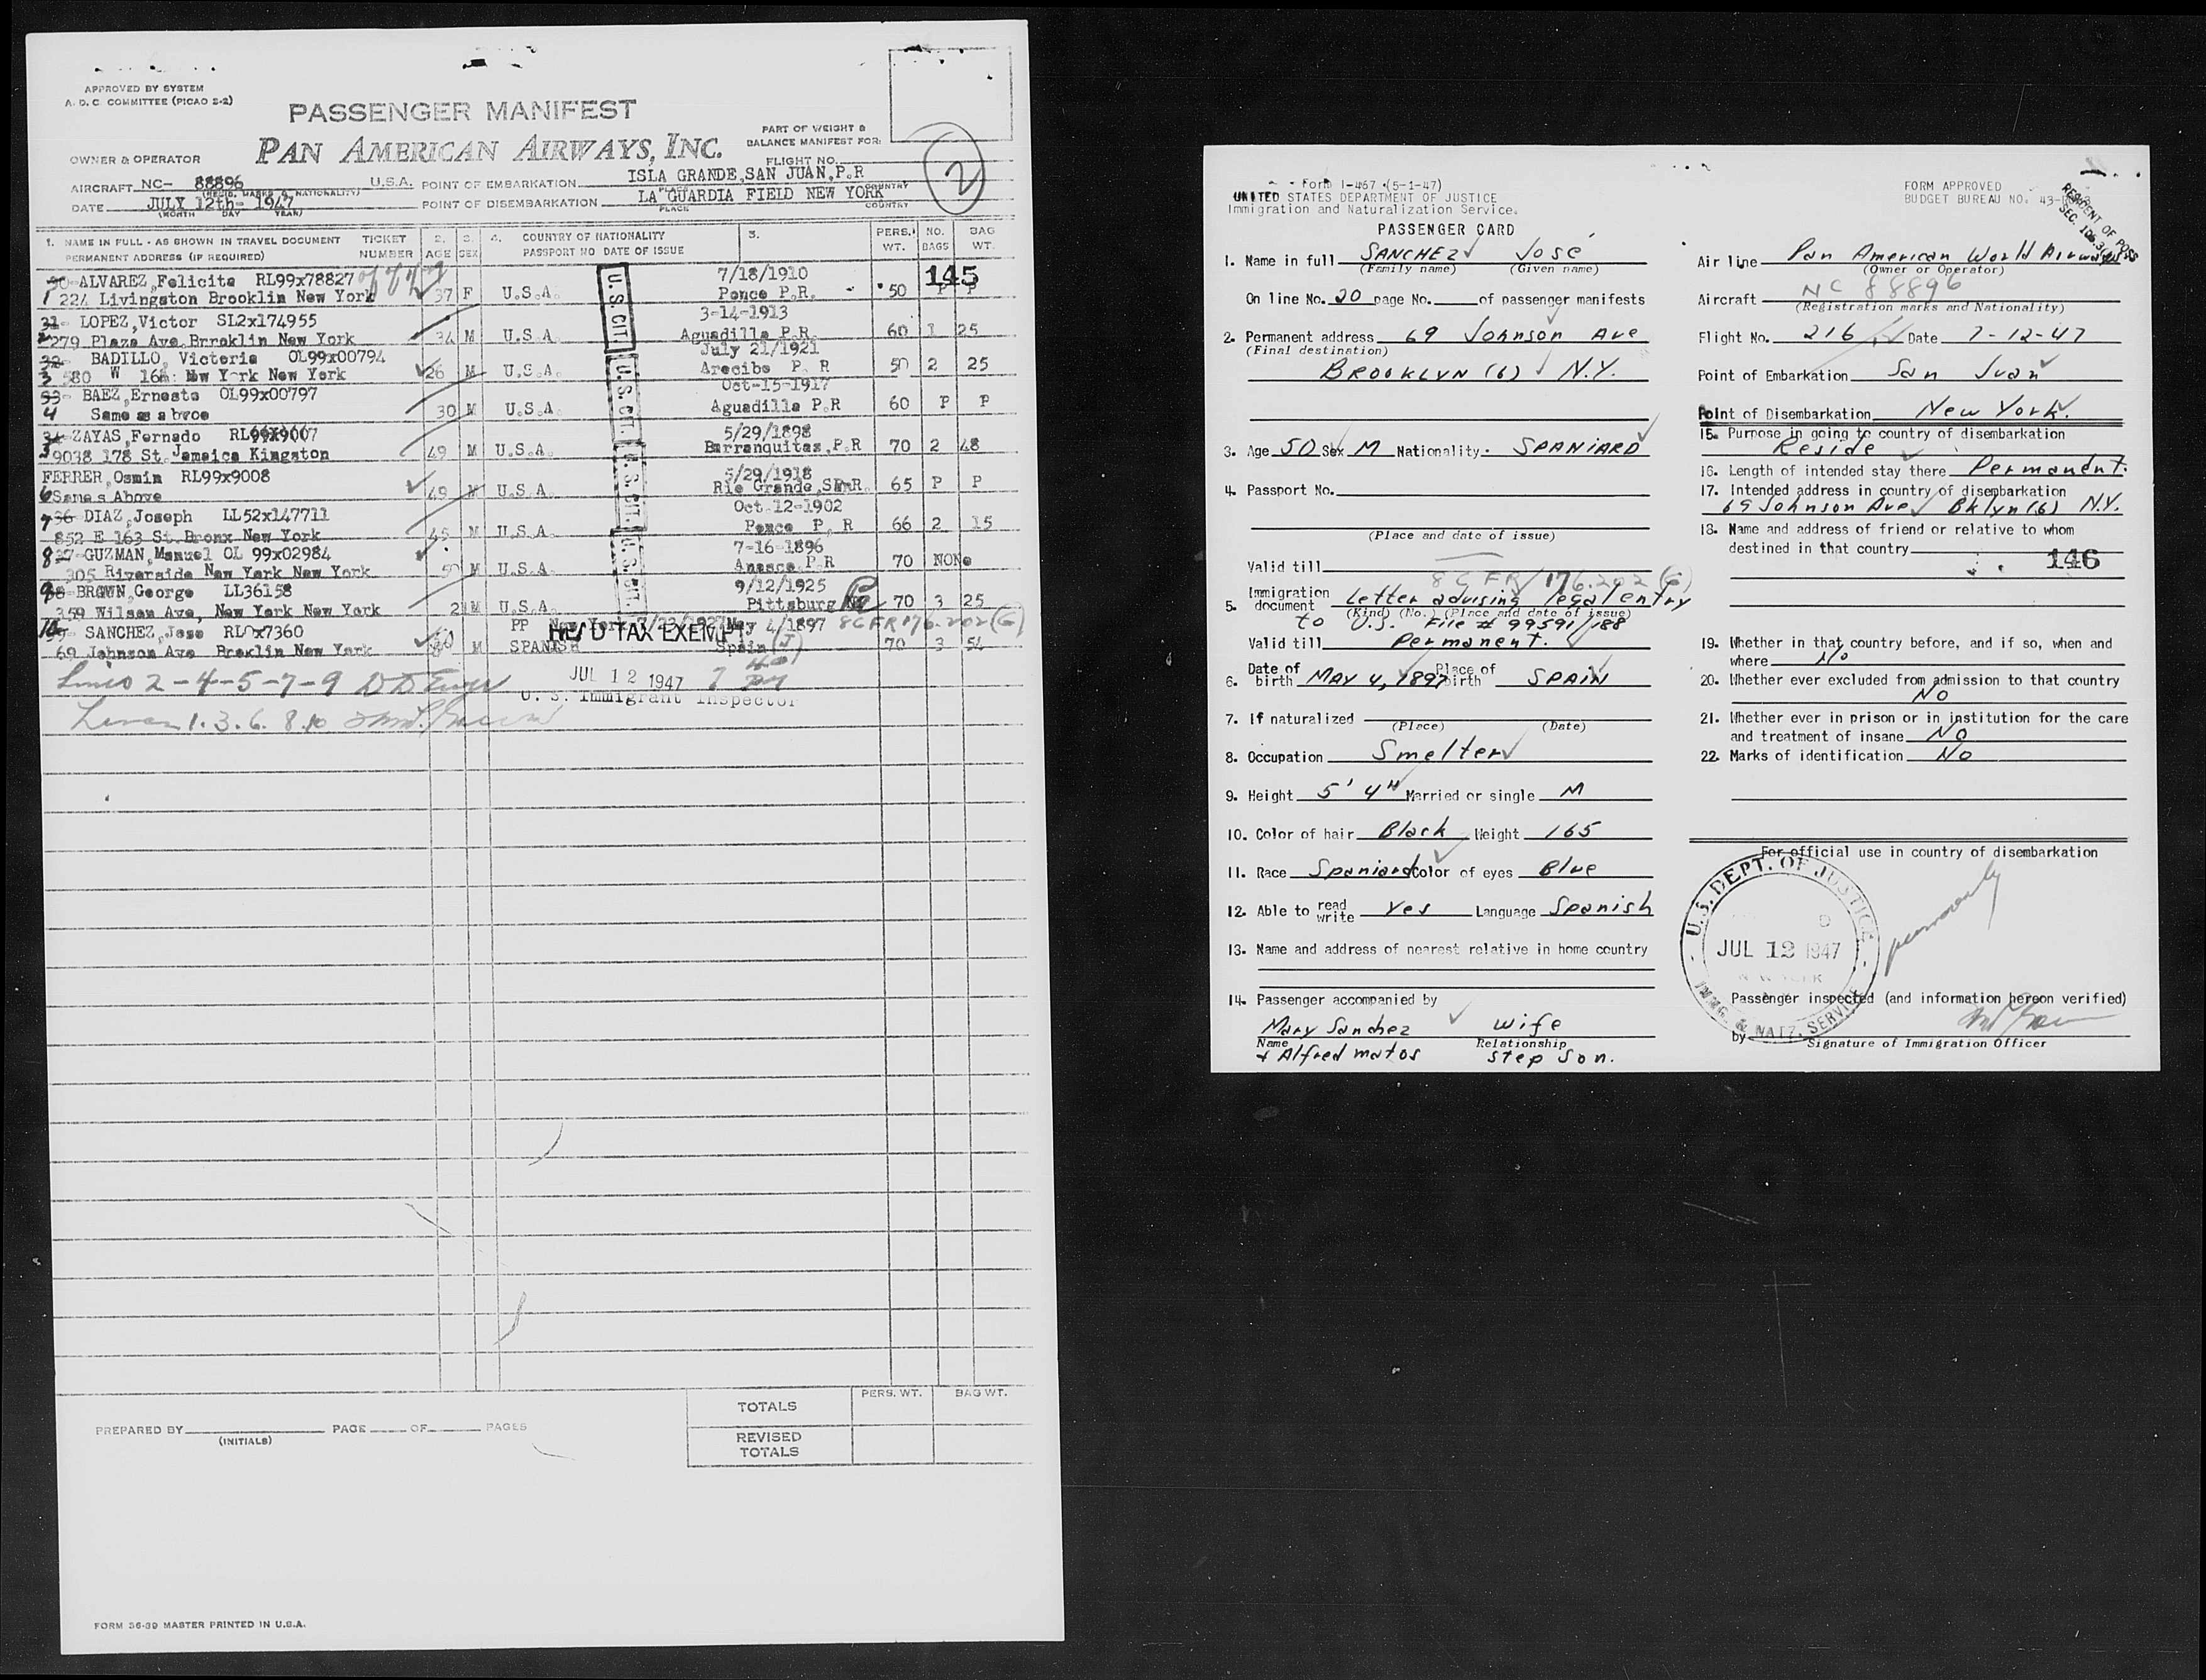 APPROVED BY SYSTEM
A. D. C. COMMITTEE (PICAO S-2)
PASSENGER MANIFEST
PAN AMERICAN AIRWAYS, INC.
PART OF WEIGHT &
BALANCE MANIFEST FOR:
FLIGHT NO.
2
OWNER & OPERATOR
AIRCRAFT NC- 88896 U.S.A.
POINT OF EMBARKATION ISLA GRANDE, SAN JUAN, P.R
PLACE COUNTRY
DATE JULY 12th- 1947
(MONTH DAY YEAR)
POINT OF DISEMBARKATION LA GUARDIA FIELD NEW YORK
PLACE COUNTRY
1. NAME IN FULL - AS SHOWN IN TRAVEL DOCUMENT TICKET 2. 3. 4. COUNTRY OF NATIONALITY 5. PERS. NO. BAG
PERMANENT ADDRESS (IF REQUIRED) NUMBER AGE SEX PASSPORT NO DATE OF ISSUE WT. BAGS WT.
30- ALVAREZ, Felicita RL99x78827 7/18/1910 145
1 224 Livingston Brooklin New York 37 F U.S.A. Ponce P.R. 50 P P
31- LOPEZ, Victor SL2x174955 3-14-1913
2 279 Plaza Ave Brroklin New York 34 M U.S.A Aguadilla P.R 60 1 25
32- BADILLO, Victoria OL99x00794 July 21/1921
3 580 W 16a: New York New York 26 M U.S.A. Arecibo P. R 50 2 25
33- BAEZ, Ernesto OL99x00797 Oct-15-1917
4 Same as abvoe 30 M U.S.A. Aguadilla P.R 60 P P
34- ZAYAS, Fernado RL99X9007 5/29/1898
5 9038 178 St. Jamaica Kingston 49 M U.S.A. Barranquitas, P.R 70 2 48
FERRER, Osmin RL99x9008 5/29/1918
6 Sames Above 49 M U.S.A. Rio Grande, P.R. 65 P P
7 36 DIAZ, Joseph LL52x147711 Oct-12-1902
852 E 163 St. Bronx New York 45 M U.S.A. Ponce P. R 66 2 15
8 37- GUZMAN, Manuel OL 99x02984 7-16-1896
305 Riverside New York New York 50 M U.S.A. Anasco P.R 70 NONe
9 38- BROWN, George LL36158 9/12/1925
359 Wilson Ave, New York New York 21 M U.S.A. Pittsburg Pa 70 3 25
10 39- SANCHEZ, Jose RL0x7360 PP New York 7/23/1927 May 4/1897 8CFR 176.202 (G)
69 Johnson Ave Brooklin New York 50 M SPANISH Spain 70 3 54
U.S. CIT.
U.S. CIT.
U.S. CIT.
U.S. CIT.
HE/D TAX EXEMPT
Lines 2-4-5-7-9
JUL 12 1947
U. S. Immigrant Inspector
Lines 1. 3. 6. 8. 10
TOTALS PERS. WT. BAG WT.
PREPARED BY PAGE OF PAGES
(INITIALS)
REVISED
TOTALS
FORM 36-39 MASTER PRINTED IN U.S.A.
Form I-467 (5-1-47)
UNITED STATES DEPARTMENT OF JUSTICE
Immigration and Naturalization Service.
PASSENGER CARD
FORM APPROVED
BUDGET BUREAU NO. 43-
1. Name in full SANCHEZ José
(Family name) (Given name)
On line No. 20 page No. of passenger manifests
2. Permanent address 69 Johnson Ave
(Final destination)
BROOKLYN (6) N.Y.
3. Age 50 Sex M Nationality. SPANIARD
4. Passport No.
(Place and date of issue)
Valid till
8 CFR 176.202 (G)
5. Immigration document Letter advising legal entry
(Kind) (No.) (Place and date of issue)
to U.S. File # 99591/188
Valid till Permanent.
6. Date of birth MAY 4, 1897 Place of birth SPAIN
7. If naturalized
(Place) (Date)
8. Occupation Smelter
9. Height 5' 4" Married or single M
10. Color of hair Black Weight 165
11. Race Spaniard Color of eyes Blue
12. Able to read write Yes Language Spanish
13. Name and address of nearest relative in home country
14. Passenger accompanied by
Mary Sanchez wife
Name Relationship
+ Alfred matos step son.
Air line Pan American World Airways
(Owner or Operator)
Aircraft NC 88896
(Registration marks and Nationality)
Flight No. 216 Date 7-12-47
Point of Embarkation San Juan
Point of Disembarkation New York.
15. Purpose in going to country of disembarkation
Reside
16. Length of intended stay there Permanent.
17. Intended address in country of disembarkation
69 Johnson Ave Bklyn (6) N.Y.
18. Name and address of friend or relative to whom
destined in that country
146
19. Whether in that country before, and if so, when and
where No
20. Whether ever excluded from admission to that country
No
21. Whether ever in prison or in institution for the care
and treatment of insane No
22. Marks of identification No
For official use in country of disembarkation
U.S. DEPT. OF JUSTICE
JUL 12 1947
IMMG. & NATZ. SERVICE
permanently
Passenger inspected (and information hereon verified)
by
Signature of Immigration Officer